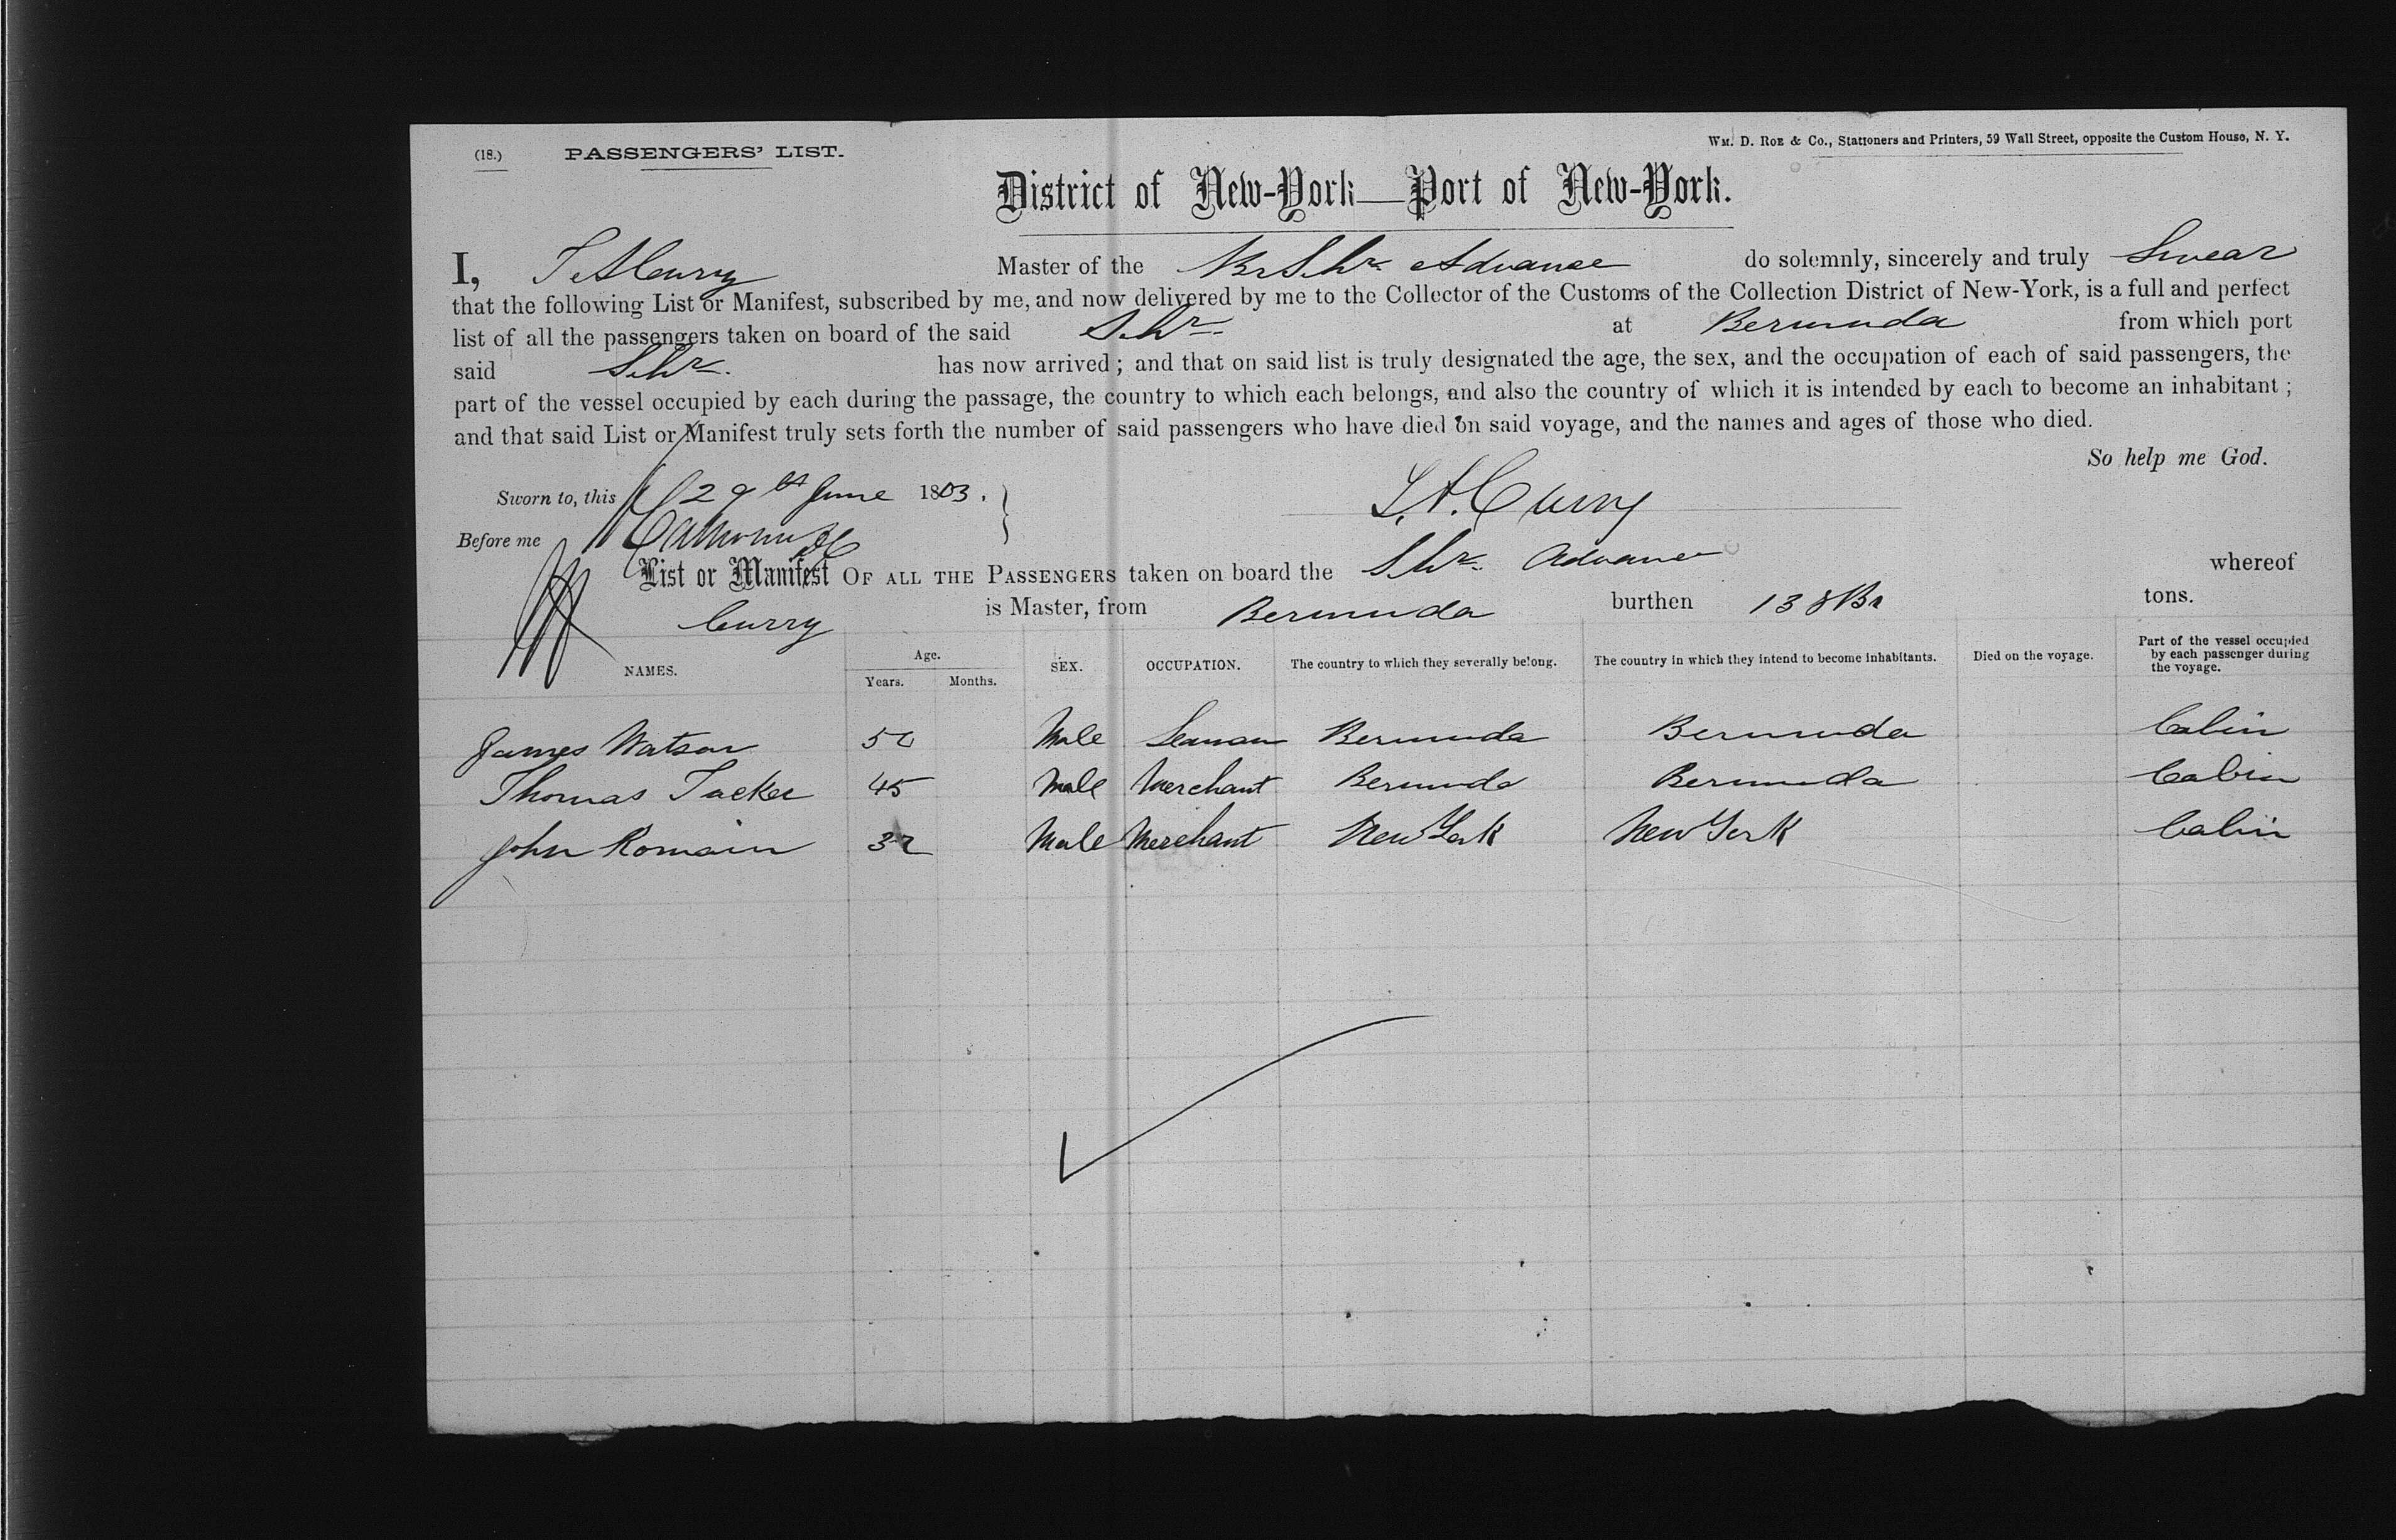 (18.) PASSENGERS' LIST. WM. D. ROE & CO., Stationers and Printers, 59 Wall Street, opposite the Custom House, N. Y.
District of New-York—Port of New-York.
I, Curry Master of the Br Schr Advance do solemnly, sincerely and truly Swear
that the following List or Manifest, subscribed by me, and now delivered by me to the Collector of the Customs of the Collection District of New-York, is a full and perfect
list of all the passengers taken on board of the said Schr. at Bermuda from which port
said Schr. has now arrived; and that on said list is truly designated the age, the sex, and the occupation of each of said passengers, the
part of the vessel occupied by each during the passage, the country to which each belongs, and also the country of which it is intended by each to become an inhabitant;
and that said List or Manifest truly sets forth the number of said passengers who have died on said voyage, and the names and ages of those who died.
So help me God.
Sworn to, this 29th June 18 Curry
Before me
List or Manifest OF ALL THE PASSENGERS taken on board the Schr. Advance whereof
Curry is Master, from Bermuda burthen 138 tons.
NAMES. Age. Years. Months. SEX. OCCUPATION. The country to which they severally belong. The country in which they intend to become inhabitants. Died on the voyage. Part of the vessel occupied by each passenger during the voyage.
James Watson 50 Male Seaman Bermuda Bermuda Cabin
Thomas Tucker 45 Male Merchant Bermuda Bermuda Cabin
John Romain 32 Male Merchant New York New York Cabin